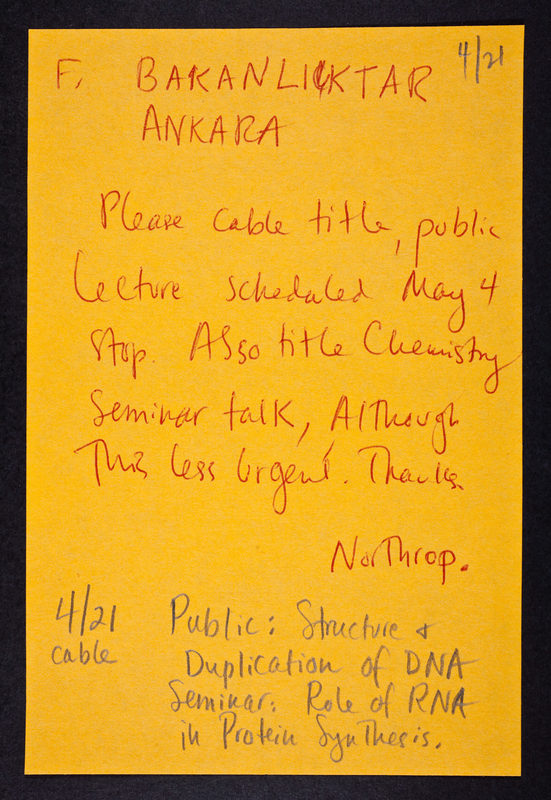 4/21
F. BAKANLIKTAR
ANKARA
Please cable title, public
lecture scheduled May 4
stop. Also title Chemistry
Seminar talk, Although
This less Urgent. Thanks.
Northrop.
4/21
cable
Public: Structure &
Duplication of DNA
Seminar: Role of RNA
in Protein Synthesis.